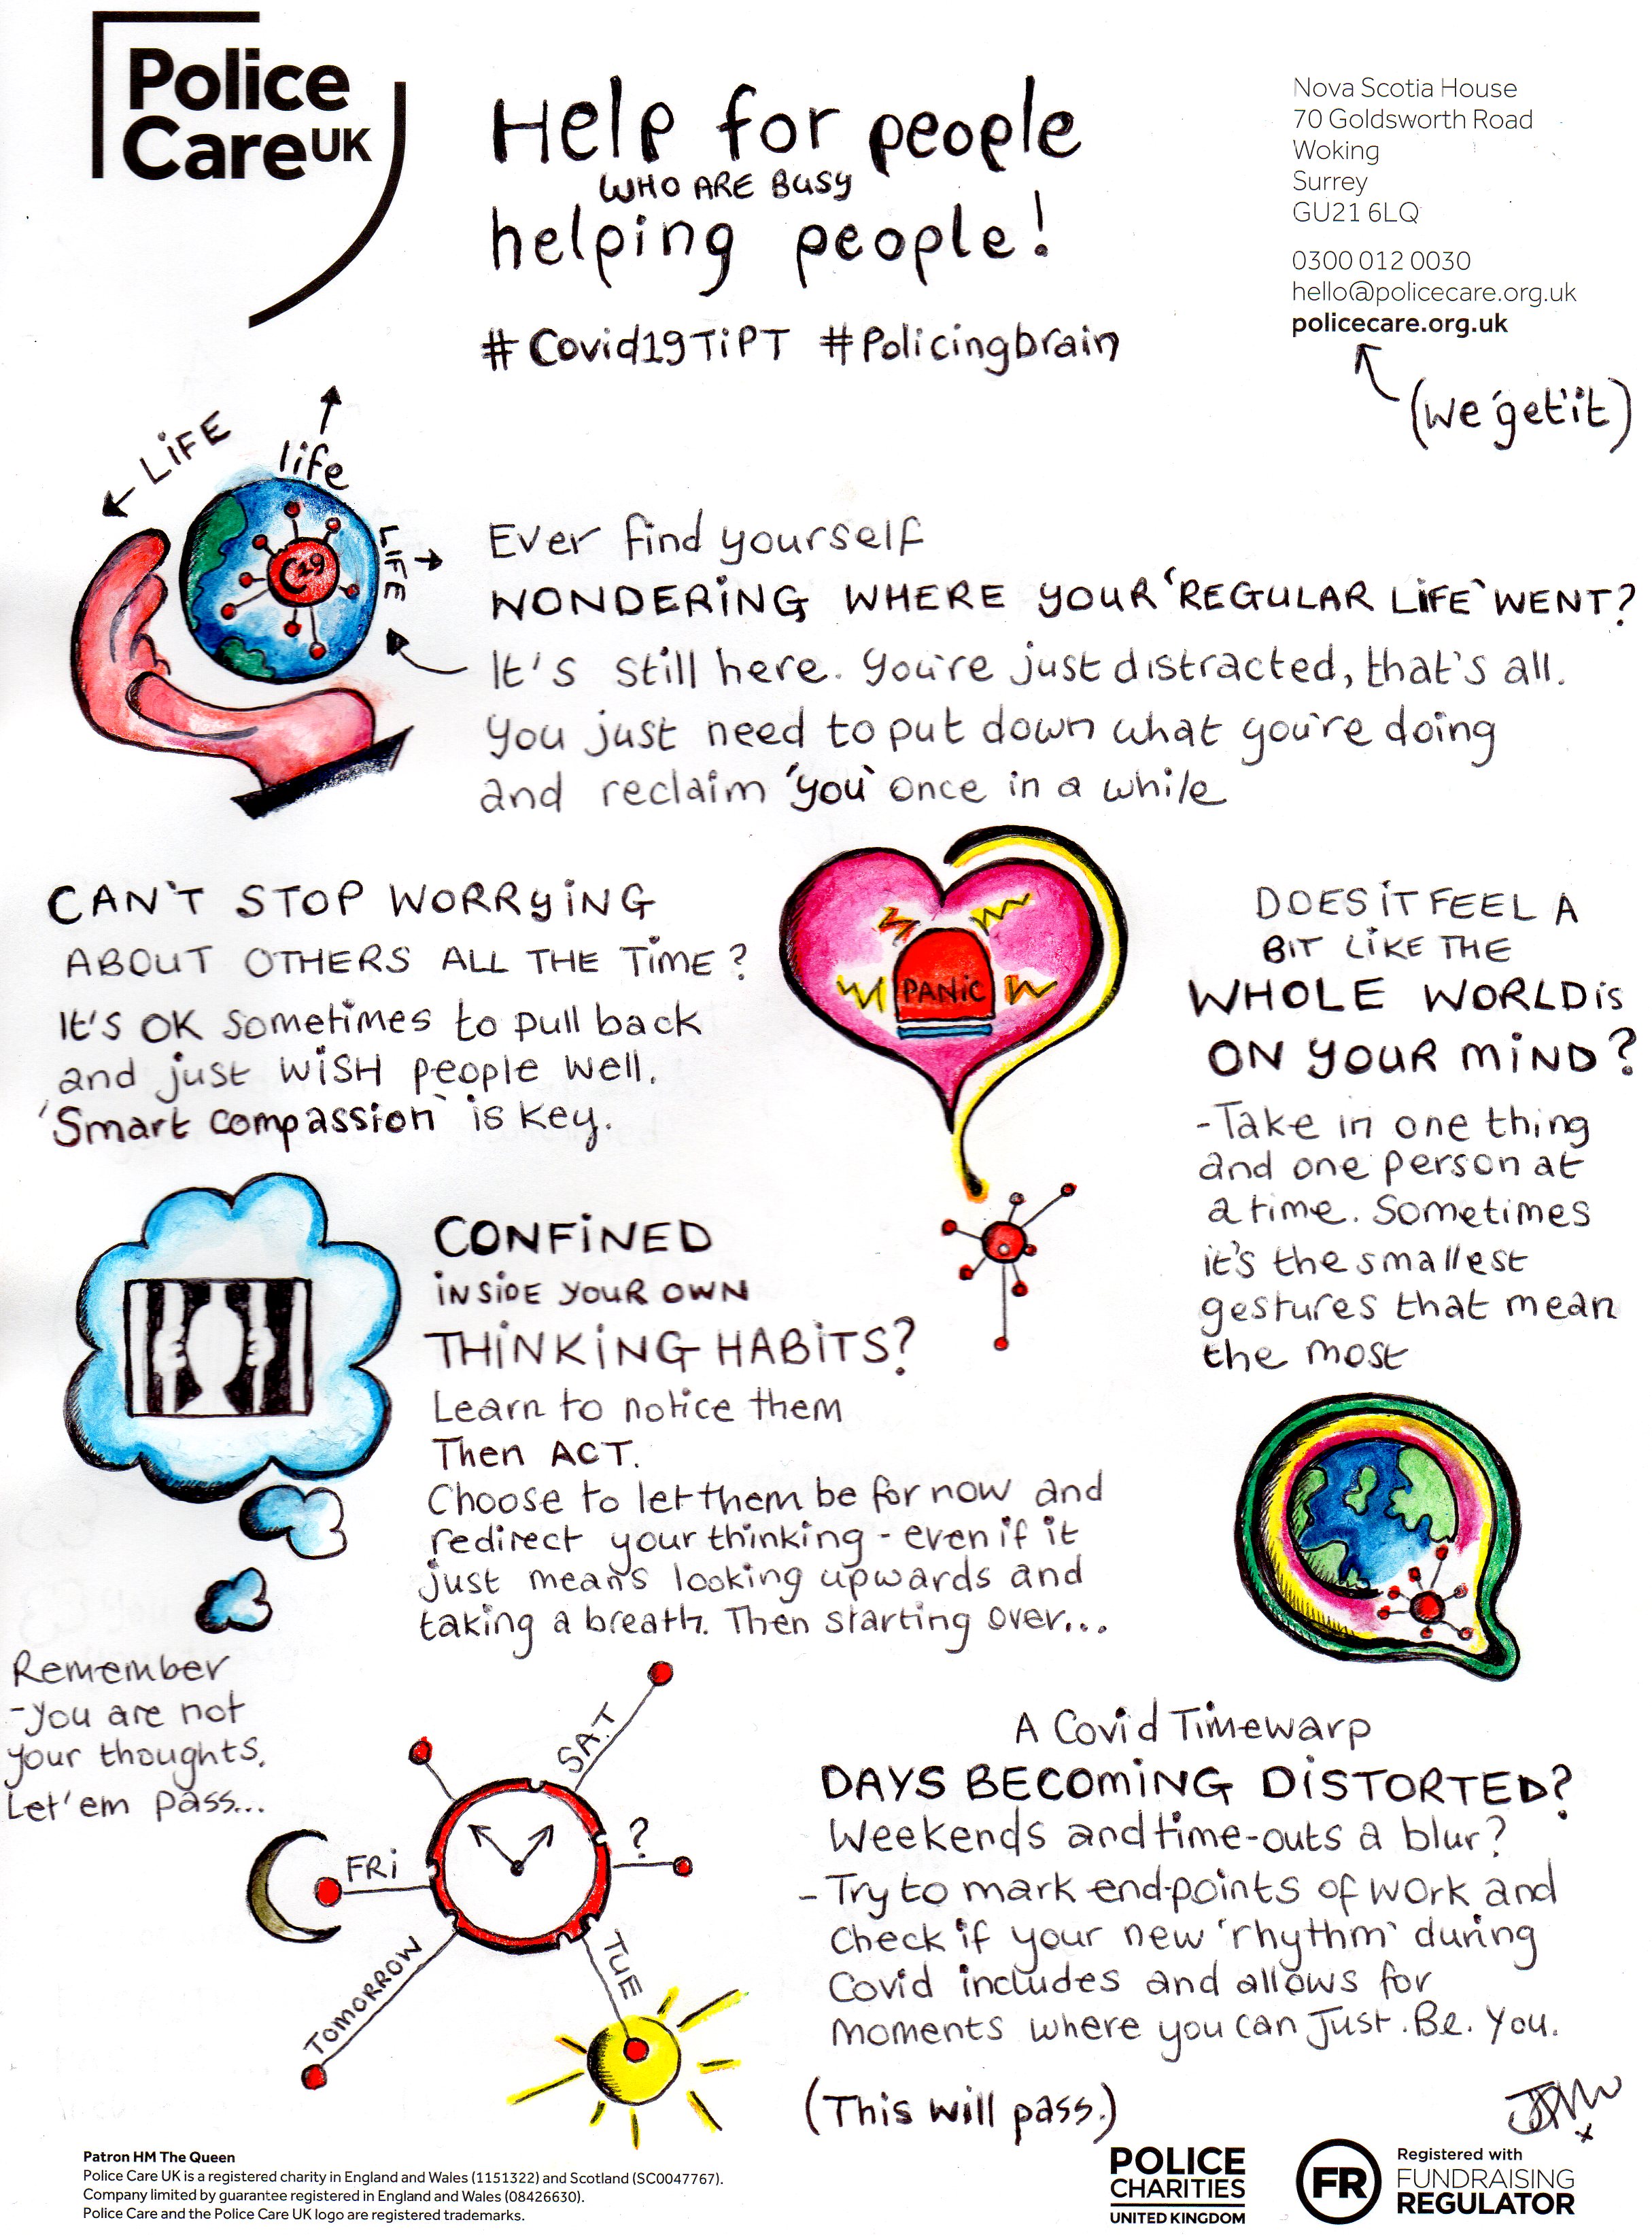 Police
CareUK
Help for people
WHO ARE BUSY
helping people!
#Covid19TiPT #Policingbrain
Nova Scotia House
70 Goldsworth Road
Woking
Surrey
GU21 6LQ
0300 012 0030
hello@policecare.org.uk
policecare.org.uk
(we 'get' it)
LiFE
life
LIFE
C19
Ever find yourself
WONDERiNG WHERE YOUR 'REGULAR LiFE' WENT?
It's still here. You're just distracted, that's all.
You just need to put down what you're doing
and reclaim 'you' once in a while
CAN'T STOP WORRYiNG
ABOUT OTHERS ALL THE TiME?
It's OK sometimes to pull back
and just WiSH people well.
'Smart compassion' is key.
PANiC
DOES iT FEEL A
BiT LiKE THE
WHOLE WORLD iS
ON YOUR MiND?
-Take in one thing
and one person at
a time. Sometimes
it's the smallest
gestures that mean
the most
CONFiNED
iNSiDE YOUR OWN
THiNKiNG HABiTS?
Learn to notice them
Then ACT.
Choose to let them be for now and
redirect your thinking - even if it
just means looking upwards and
taking a breath. Then starting over...
Remember
-you are not
your thoughts.
Let 'em pass...
SAT
?
FRi
TUE
TOMORROW
A Covid Timewarp
DAYS BECOMiNG DiSTORTED?
Weekends and time-outs a blur?
- Try to mark end-points of work and
check if your new 'rhythm' during
Covid includes and allows for
moments where you can Just. Be. You.
(This will pass.)
Patron HM The Queen
Police Care UK is a registered charity in England and Wales (1151322) and Scotland (SC0047767).
Company limited by guarantee registered in England and Wales (08426630).
Police Care and the Police Care UK logo are registered trademarks.
POLICE
CHARITIES
UNITED KINGDOM
FR
Registered with
FUNDRAISING
REGULATOR